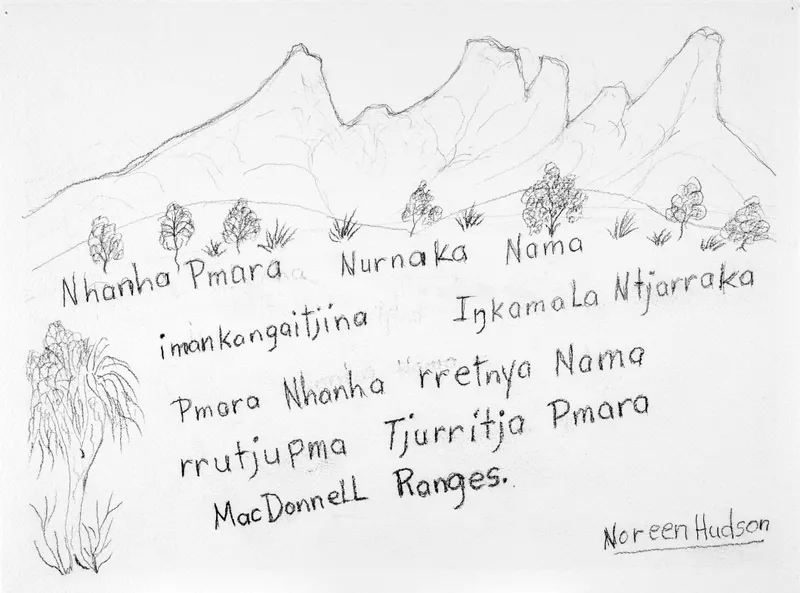 Nhanha Pmara Nurnaka Nama
imankangaitjina Iŋkamala Ntjarraka
Pmara Nhanha rretnya Nama
rrutjupma Tjurritja Pmara
MacDonnell Ranges.
Noreen Hudson